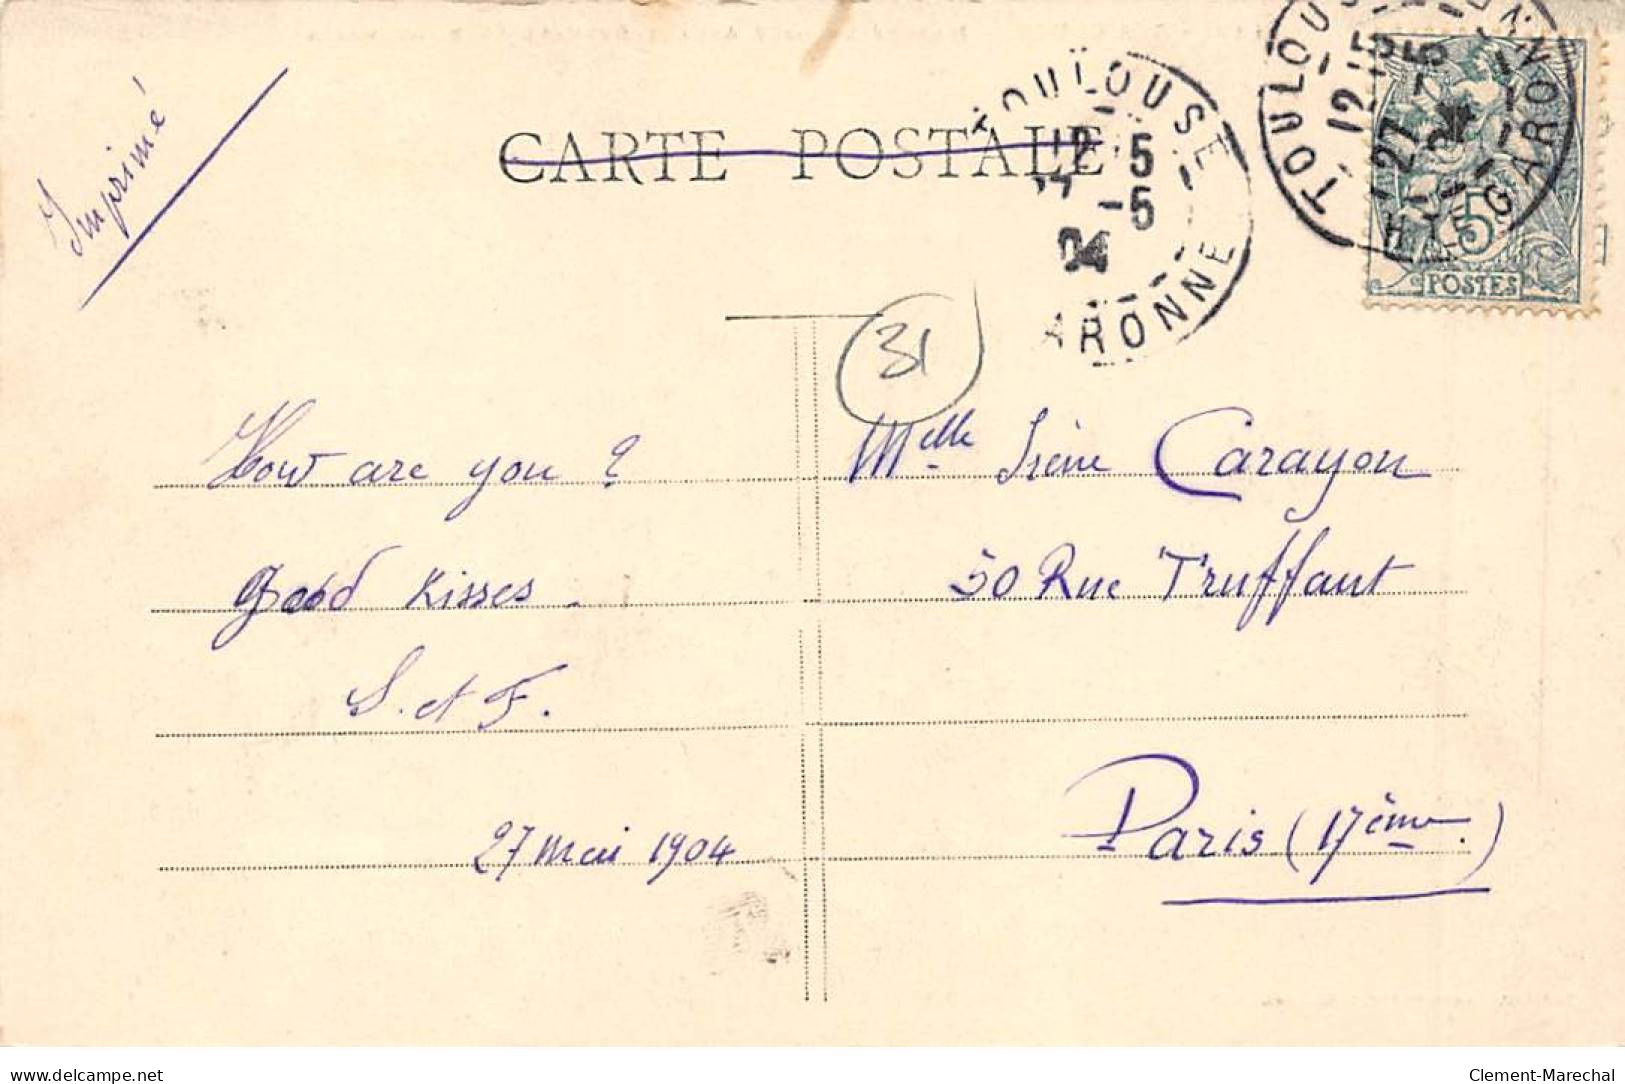 Imprimé
CARTE POSTALE
TOULOUSE
12 5
-5
04
ARONNE
TOULOUS
12
27
HTE GARON
5
POSTES
31
How are you ?
Good Kisses.
S. et F.
27 mai 1904
Melle Irène Carayon
50 Rue Truffaut
Paris (17ème.)
delcampe.net
Clement-Marechal